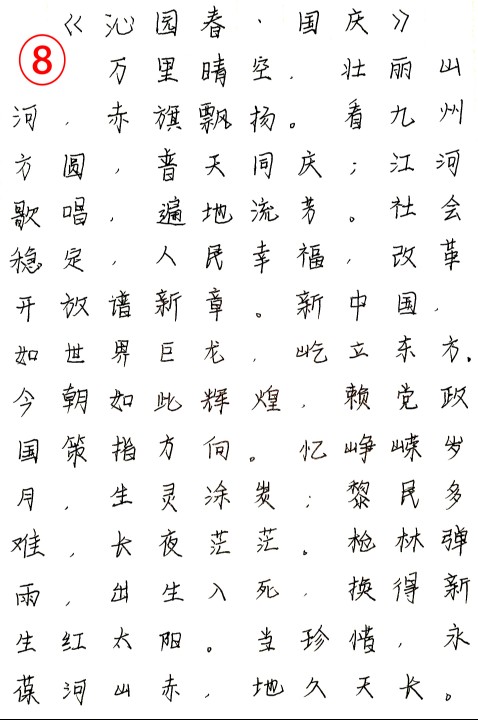 《沁园春·国庆》
⑧
万里晴空，壮丽山
河，赤旗飘扬。看九州
方圆，普天同庆；江河
歌唱，遍地流芳。社会
稳定，人民幸福，改革
开放谱新章。新中国，
如世界巨龙，屹立东方。
今朝如此辉煌，赖党政
国策指方向。忆峥嵘岁
月，生灵涂炭；黎民多
难，长夜茫茫。枪林弹
雨，出生入死，换得新
生红太阳。当珍惜，永
葆河山赤，地久天长。